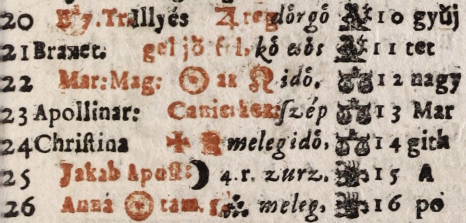 20 Illyés reg dörgő 10 gyűj
21 Braxet. gel jő f. 1. kő esős 11 tet
22 Mar: Mag: idő. 12 nagy
23 Apollinar: szép 13 Mar
24 Chriſtina meleg idő, 14 gith
25 Jakab Apoſt: 4. r. zurz. 15 A
26 Anna meleg, 16 po